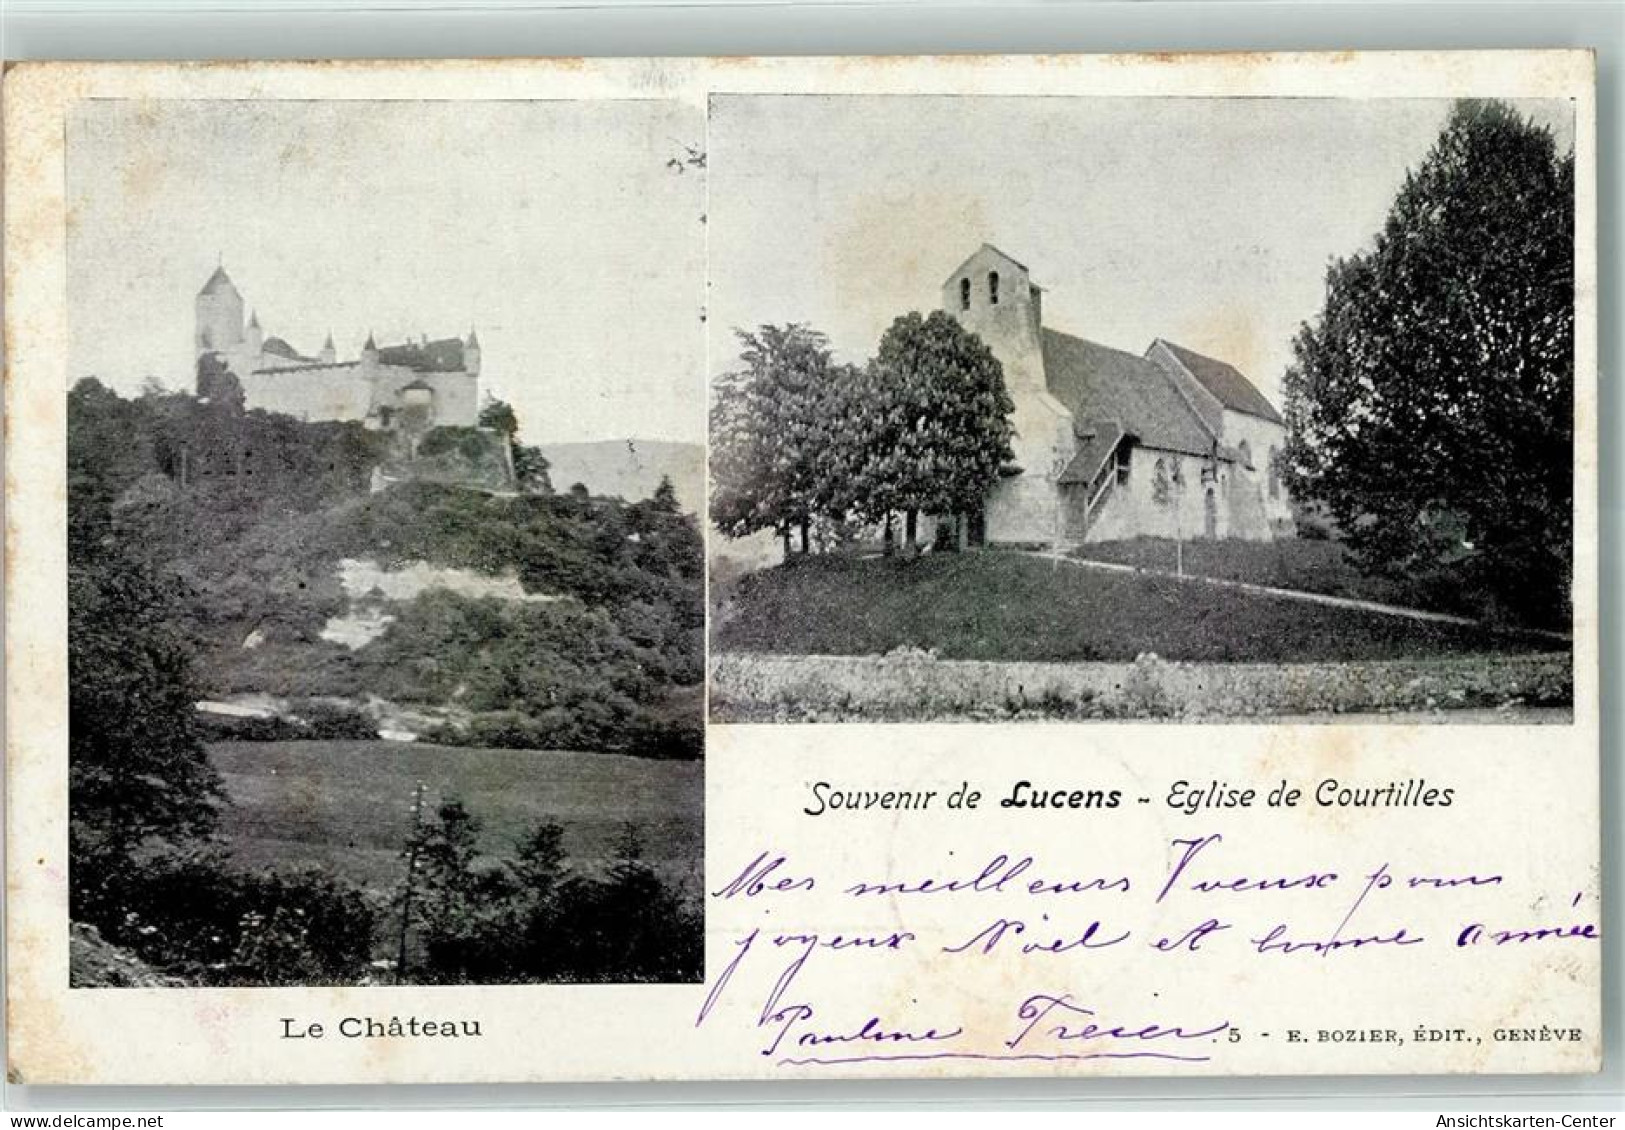 Le Château
Souvenir de Lucens - Eglise de Courtilles
Mes meilleurs Voeux pour
joyeux Noël et bonne année
Pauline
5 - E. BOZIER, ÉDIT., GENÈVE
Ansichtskarten-Center